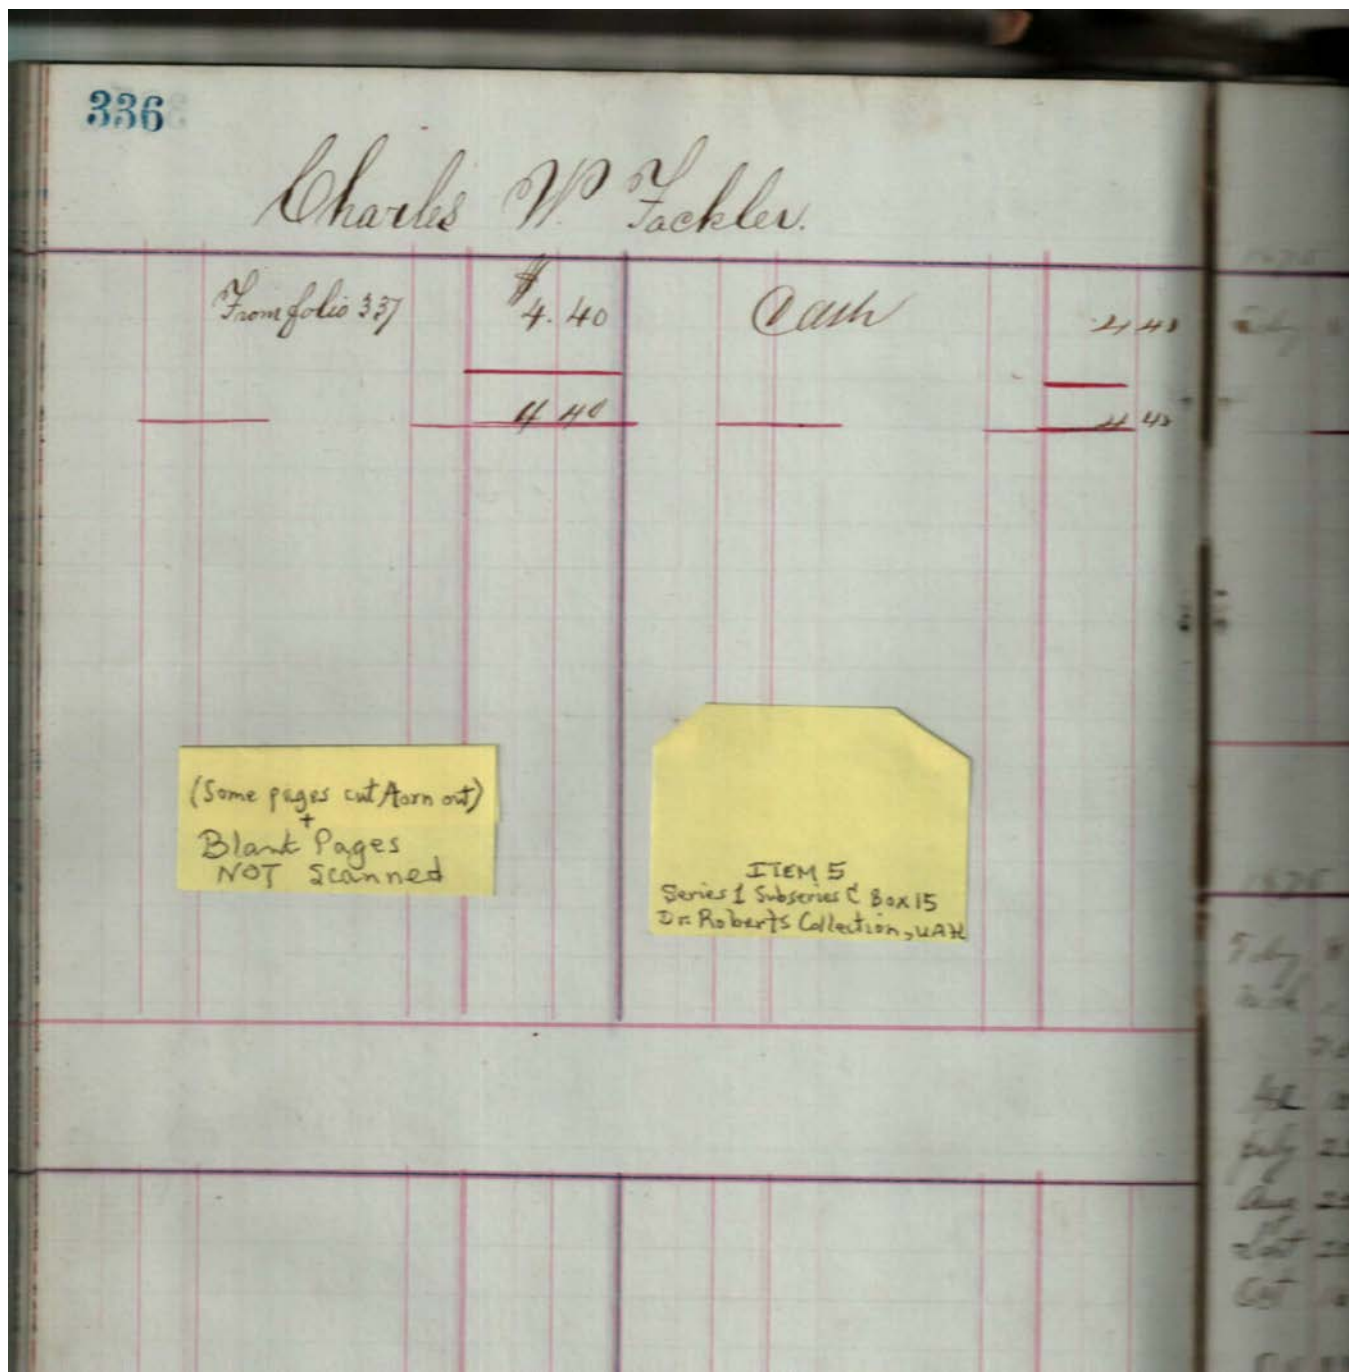 336
Charles W. Fackler.
From folio 337 $4.40 Cash 4 40
4 40 4 40
(Some pages cut/torn out)
+
Blank Pages
NOT Scanned
ITEM 5
Series 1 Subseries C Box 15
Dr. Roberts Collection, UAH
July
Aug 25
Oct